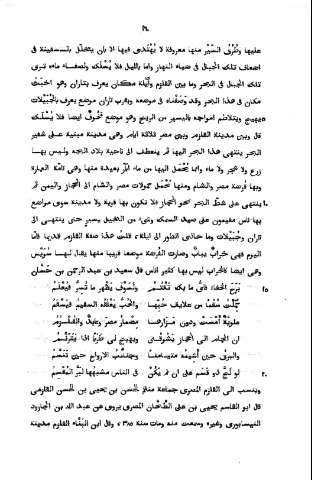 ١٦٠
عليها وطُرُق السَّيْر منها معروفة لا يُهْتَدى فيها الا بأن يتخلّل بالسفينة في
اضعاف تلك الجبال في ضياء النهار واما بالليل فلا يُسْلَك ولصفاء ماءه ترى
تلك الجبال في البحر وما بين القلزم وأَيْلة مكان يعرف بتاران وهو اخبث
مكان في هذا البحر وقد وصفناه في موضعه وبقرب تاران موضع يعرف بالجُبَيْلات
يهيج ويتلاطم امواجه باليسير من الريح وهو موضع مَخُوف ايضا فلا يُسْلَك
قال وبين مدينة القلزم وبين مصر ثلاثة ايام وهي مدينة مبنية على شفير
البحر ينتهي هذا البحر اليها ثم ينعطف الى ناحية بلاد البجه وليس بها
زرع ولا شجر ولا ماء وانما يُحْمَل اليها من ماء آبار بعيدة منها وهي تامّة العمارة
وبها فُرْضة مصر والشام ومنها تُحْمَل حمولات مصر والشام الى الحجاز واليمن ثم
١٠ ينتهي على شطّ البحر نحو الحجاز فلا تكون بها قرية ولا مدينة سوى مواضع
بها ناس مقيمون على صيد السمك وشيء من النخيل يسير حتى ينتهي الى
تاران وجُبَيْلات وما حاذى الطور الى أيلة، قلتُ هذا صفة القلزم قديما فأمّا
اليوم فهي خرابٌ يبابٌ وصارت الفُرضة موضعا قريبا منها يقال لها سُوَيْس
وهي ايضا كالخراب ليس بها كثير اناس قال سعيد بن عبد الرحمن بن حَسّان
١٥ بَرِحَ الخفاءُ فأيّ ما بك تكتُمُ ولسوف يظهر ما تُسِرّ فيُعْلَمُ
حُمِّلْتَ سُقْما من علايق حُبّها والحُبّ يَعْلَقه السقيمُ فيَسْقَمُ
عُلْوِيّة أَمْسَتْ ودون مزارها مِضْمارُ مصر وعابدٌ والقُلْزُمُ
ان الحمام الى الحجاز يشوقنى ويهيج لى طَرَبًا اذا يترنّمُ
والبرق حين أَشيمُه متيامنا وجنائب الارواح حين تَنَسَّمُ
٢٠ لو لَجَّ ذو قسم على ان لم يكُنْ فى الناس مشبهُها لبَرَّ المُقْسِمُ
وينسب الى القلزم المصرى جماعة منهم الحسن بن يحيى بن الحسن القلزمى
قال ابو القاسم يحيى بن على الطحّان المصرى يروى عن عبد الله بن الجارود
النيسابورى وغيره وسمعت منه ومات سنة ٣٨٥، وقال ابن البَنّاء القلزم مدينة